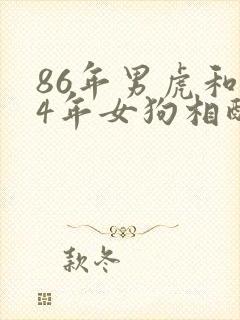 86年男虎和
4年女狗相配
款冬